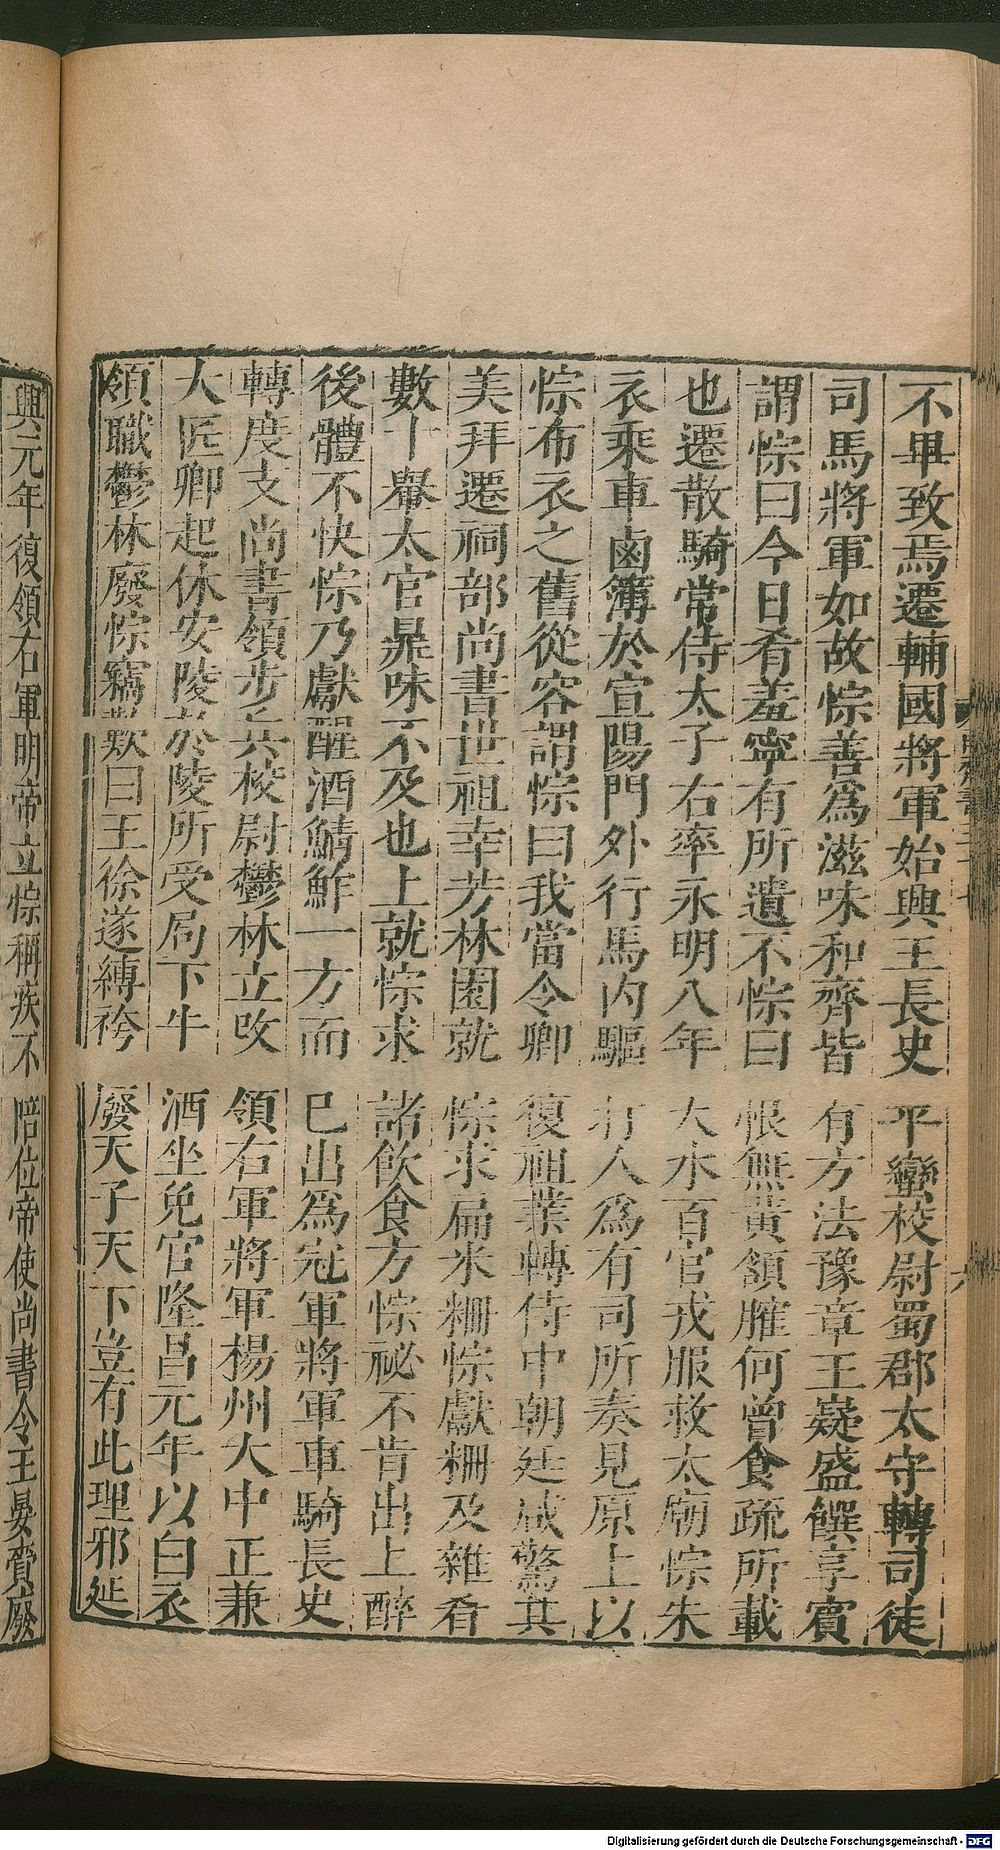 不畢致焉遷輔國將軍始興王長史平蠻校尉蜀郡太守轉司徒
司馬將軍如故悰善為滋味和齊皆有方法豫章王嶷盛饌享賓
謂悰曰今日肴羞寧有所遺不悰曰恨無黃頷臛何曾食疏所載
也遷散騎常侍太子右率永明八年大水百官戎服救太廟悰朱
衣乘車鹵簿於宣陽門外行馬內驅打人為有司所奏見原上以
悰布衣之舊從容謂悰曰我當令卿復祖業轉侍中朝廷咸驚其
美拜遷祠部尚書世祖幸芳林園就悰求扁米粣悰獻粣及雜肴
數十轝太官鼎味不及也上就悰求諸飲食方悰祕不肯出上醉
後體不快悰乃獻醒酒鯖鮓一方而已出為冠軍將軍車騎長史
轉度支尚書領步兵校尉鬱林立改領右軍將軍楊州大中正兼
大匠卿起休安陵於陵所受局下牛酒坐免官隆昌元年以白衣
領職鬱林廢悰竊歎曰王徐遂縛袴廢天子天下豈有此理邪延
興元年復領右軍明帝立悰稱疾不陪位帝使尚書令王晏賫廢
Digitalisierung gefördert durch die Deutsche Forschungsgemeinschaft - DFG